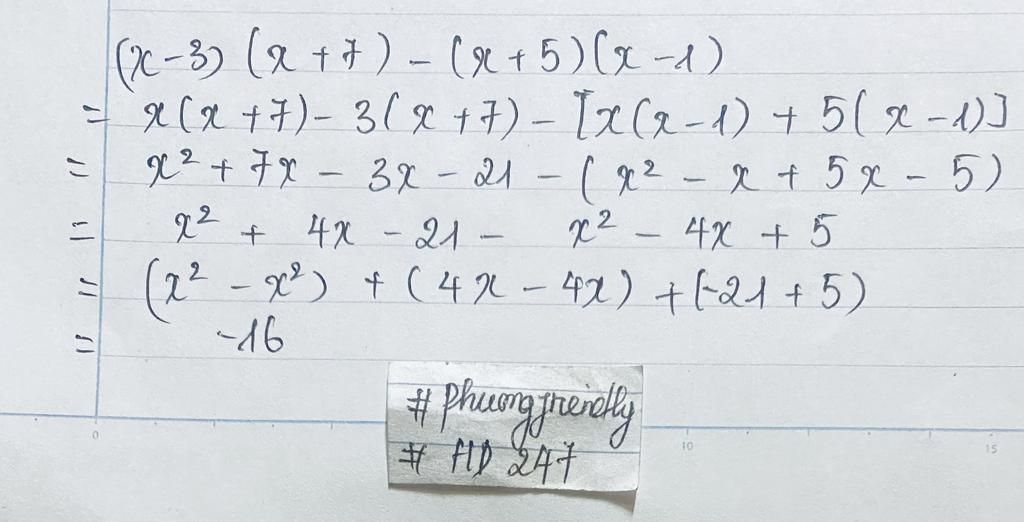 (x-3) (x+7) - (x+5)(x-1)
= x(x+7) - 3(x+7) - [x(x-1) + 5(x-1)]
= x² + 7x - 3x - 21 - (x² - x + 5x - 5)
= x² + 4x - 21 - x² - 4x + 5
= (x² - x²) + (4x - 4x) + (-21 + 5)
= -16
# phuongfriendly
# HD 247
0 10 15